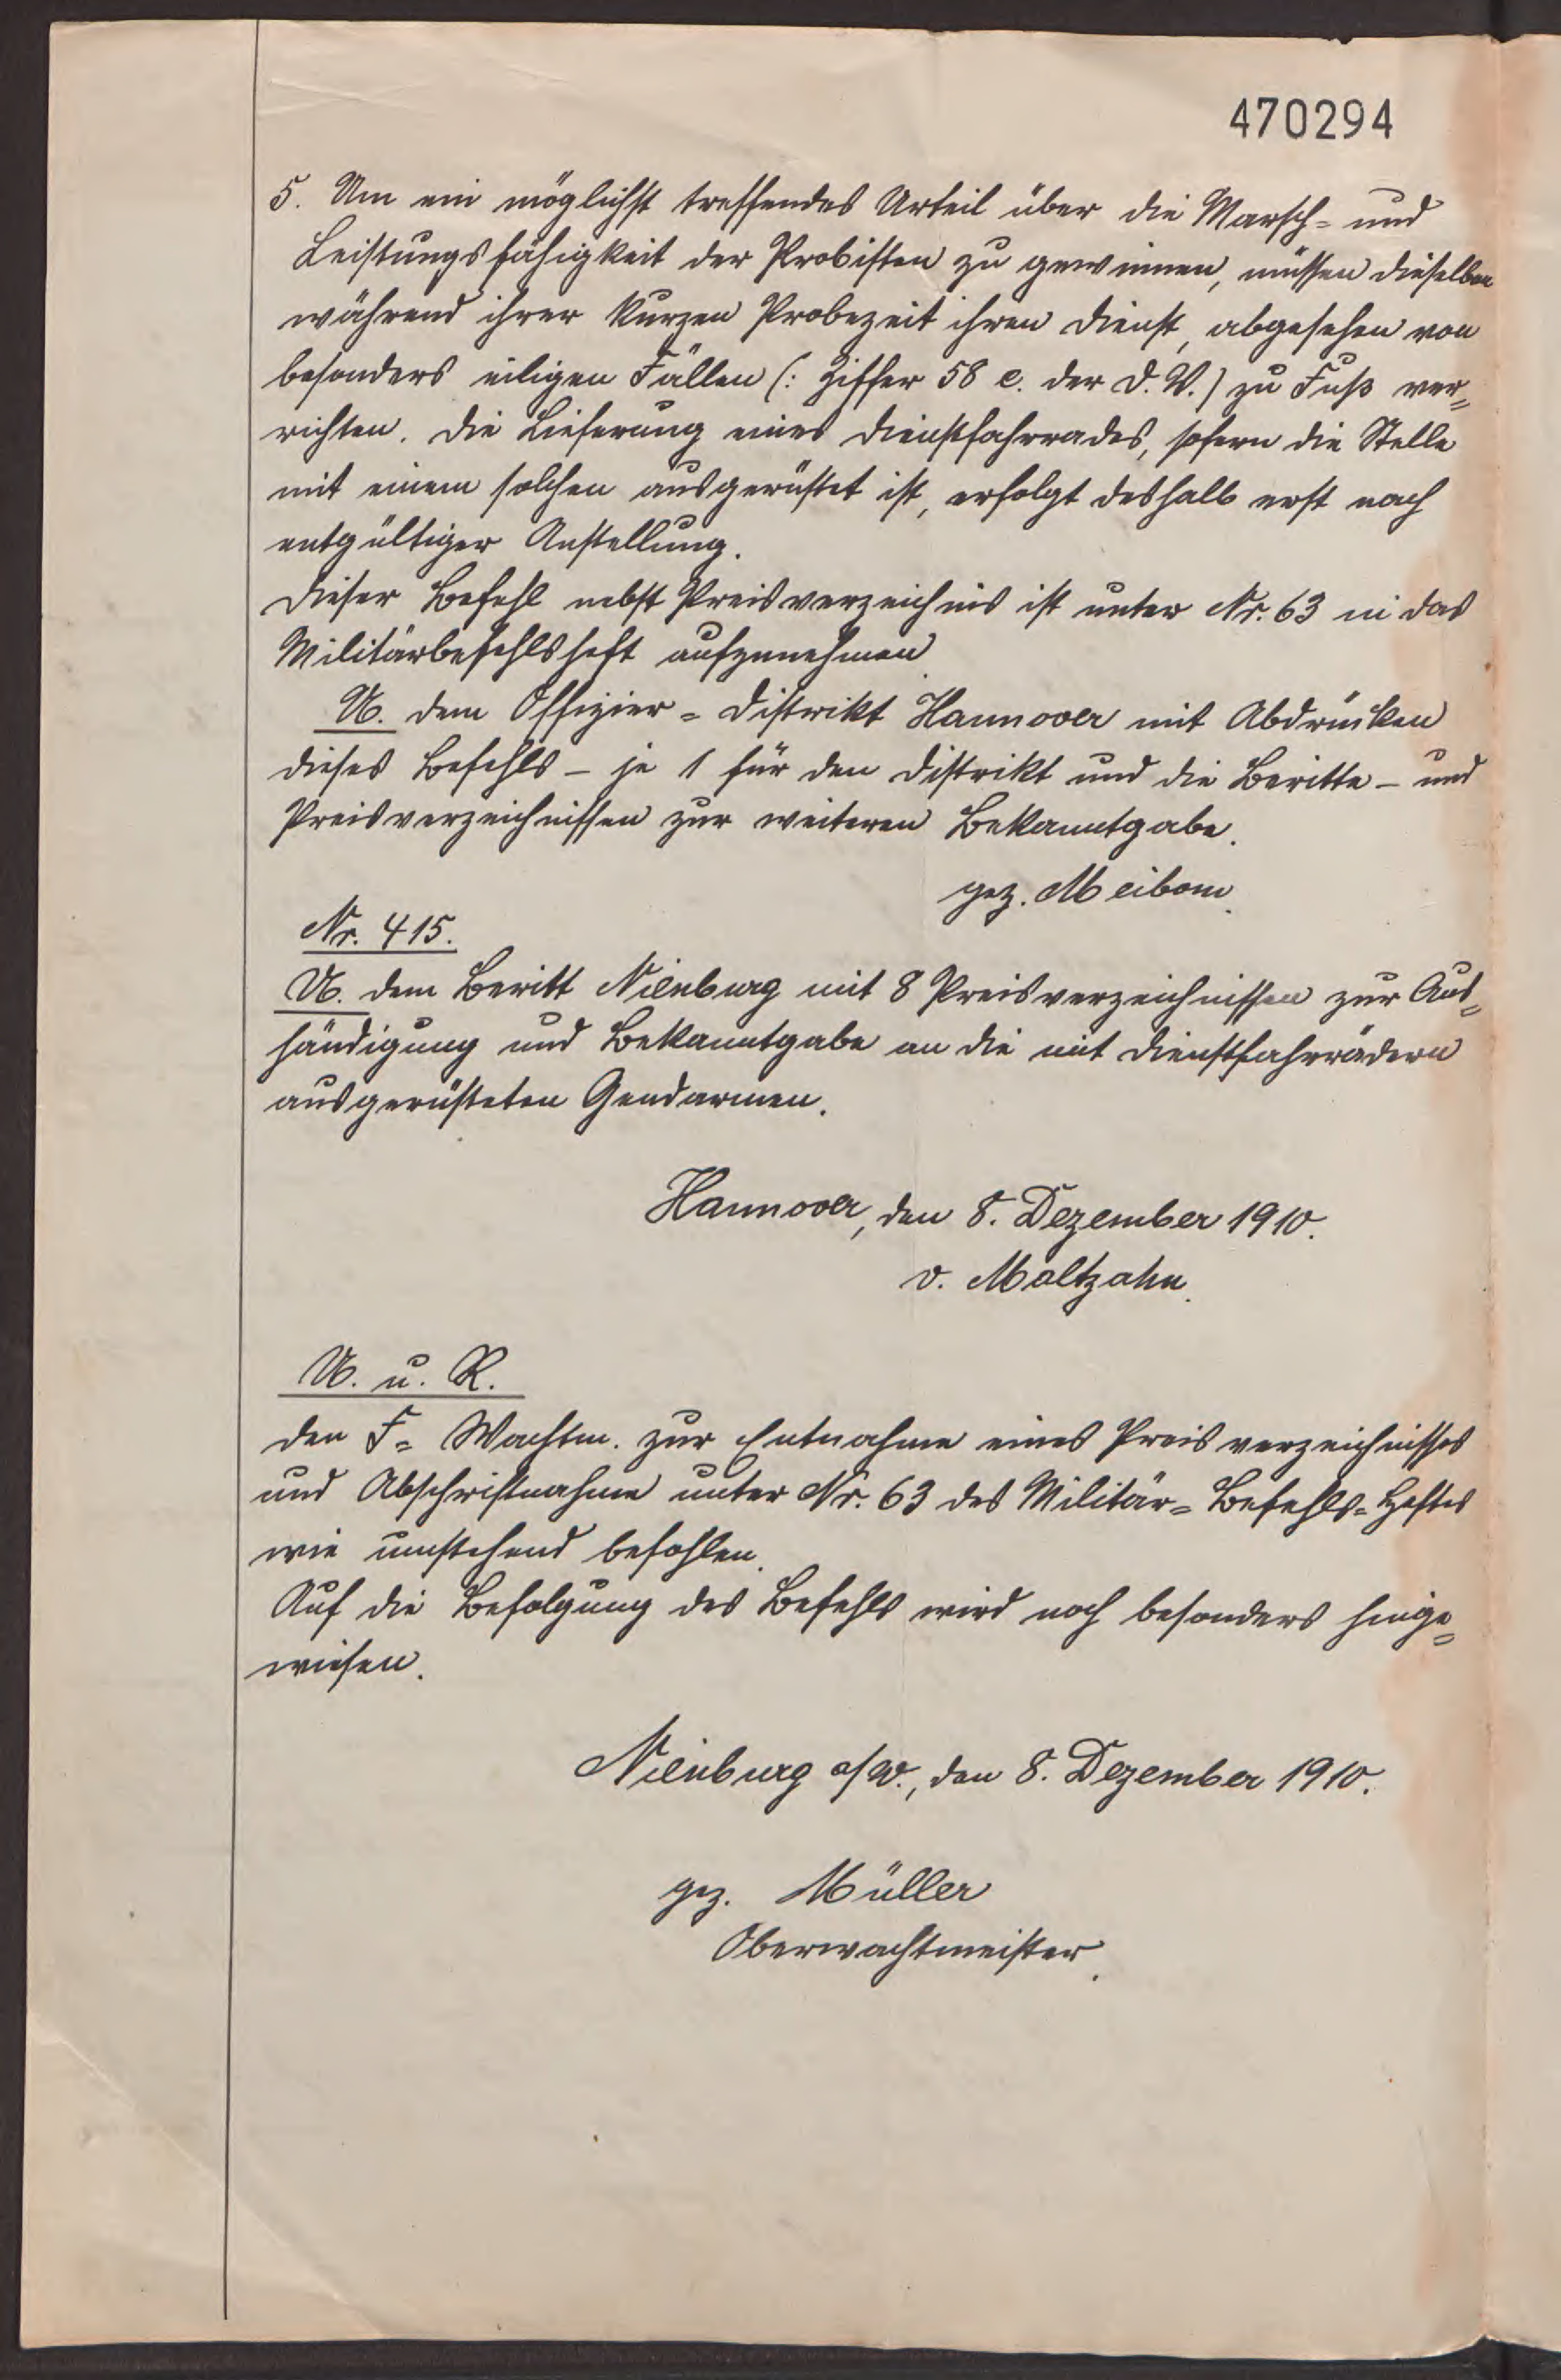 470294
5. Um ein möglichst treffendes Urteil über die Marsch- und
Leistungsfähigkeit der Probisten zu gewinnen, müssen dieselben
während ihrer kurzen Probezeit ihren Dienst, abgesehen von
besonders eiligen Fällen (: Ziffer 58 c. der D. V.) zu Fuß ver-
richten. Die Lieferung eines Dienstfahrrades, sofern die Stelle
mit einem solchen ausgerüstet ist, erfolgt deshalb erst nach
entgültiger Anstellung.
Dieser Befehl nebst Preisverzeichnis ist unter Nr. 63 in das
Militärbefehlsheft aufzunehmen.
U. dem Offizier-Distrikt Hannover mit Abdrücken
dieses Befehls – je 1 für den Distrikt und die Beritte – und
Preisverzeichnissen zur weiteren Bekanntgabe.
gez. Meibom.
Nr. 415.
U. dem Beritt Nienburg mit 8 Preisverzeichnissen zur Aus-
händigung und Bekanntgabe an die mit Dienstfahrrädern
ausgerüsteten Gendarmen.
Hannover, den 8. Dezember 1910.
v. Maltzahn.
U. u. R.
den F- Wachtm. zur Entnahme eines Preisverzeichnisses
und Abschriftnahme unter Nr. 63 des Militär-Befehls-Heftes
wie umstehend befohlen.
Auf die Befolgung des Befehls wird noch besonders hinge-
wiesen.
Nienburg a/W., den 8. Dezember 1910.
gez. Müller
Oberwachtmeister.